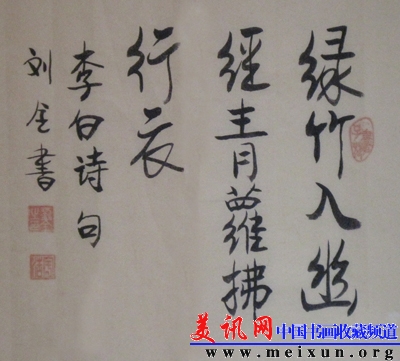 绿竹入幽
经青萝拂
行衣
李白诗句
刘金书
美讯网 中国书画收藏频道
www.meixun.org